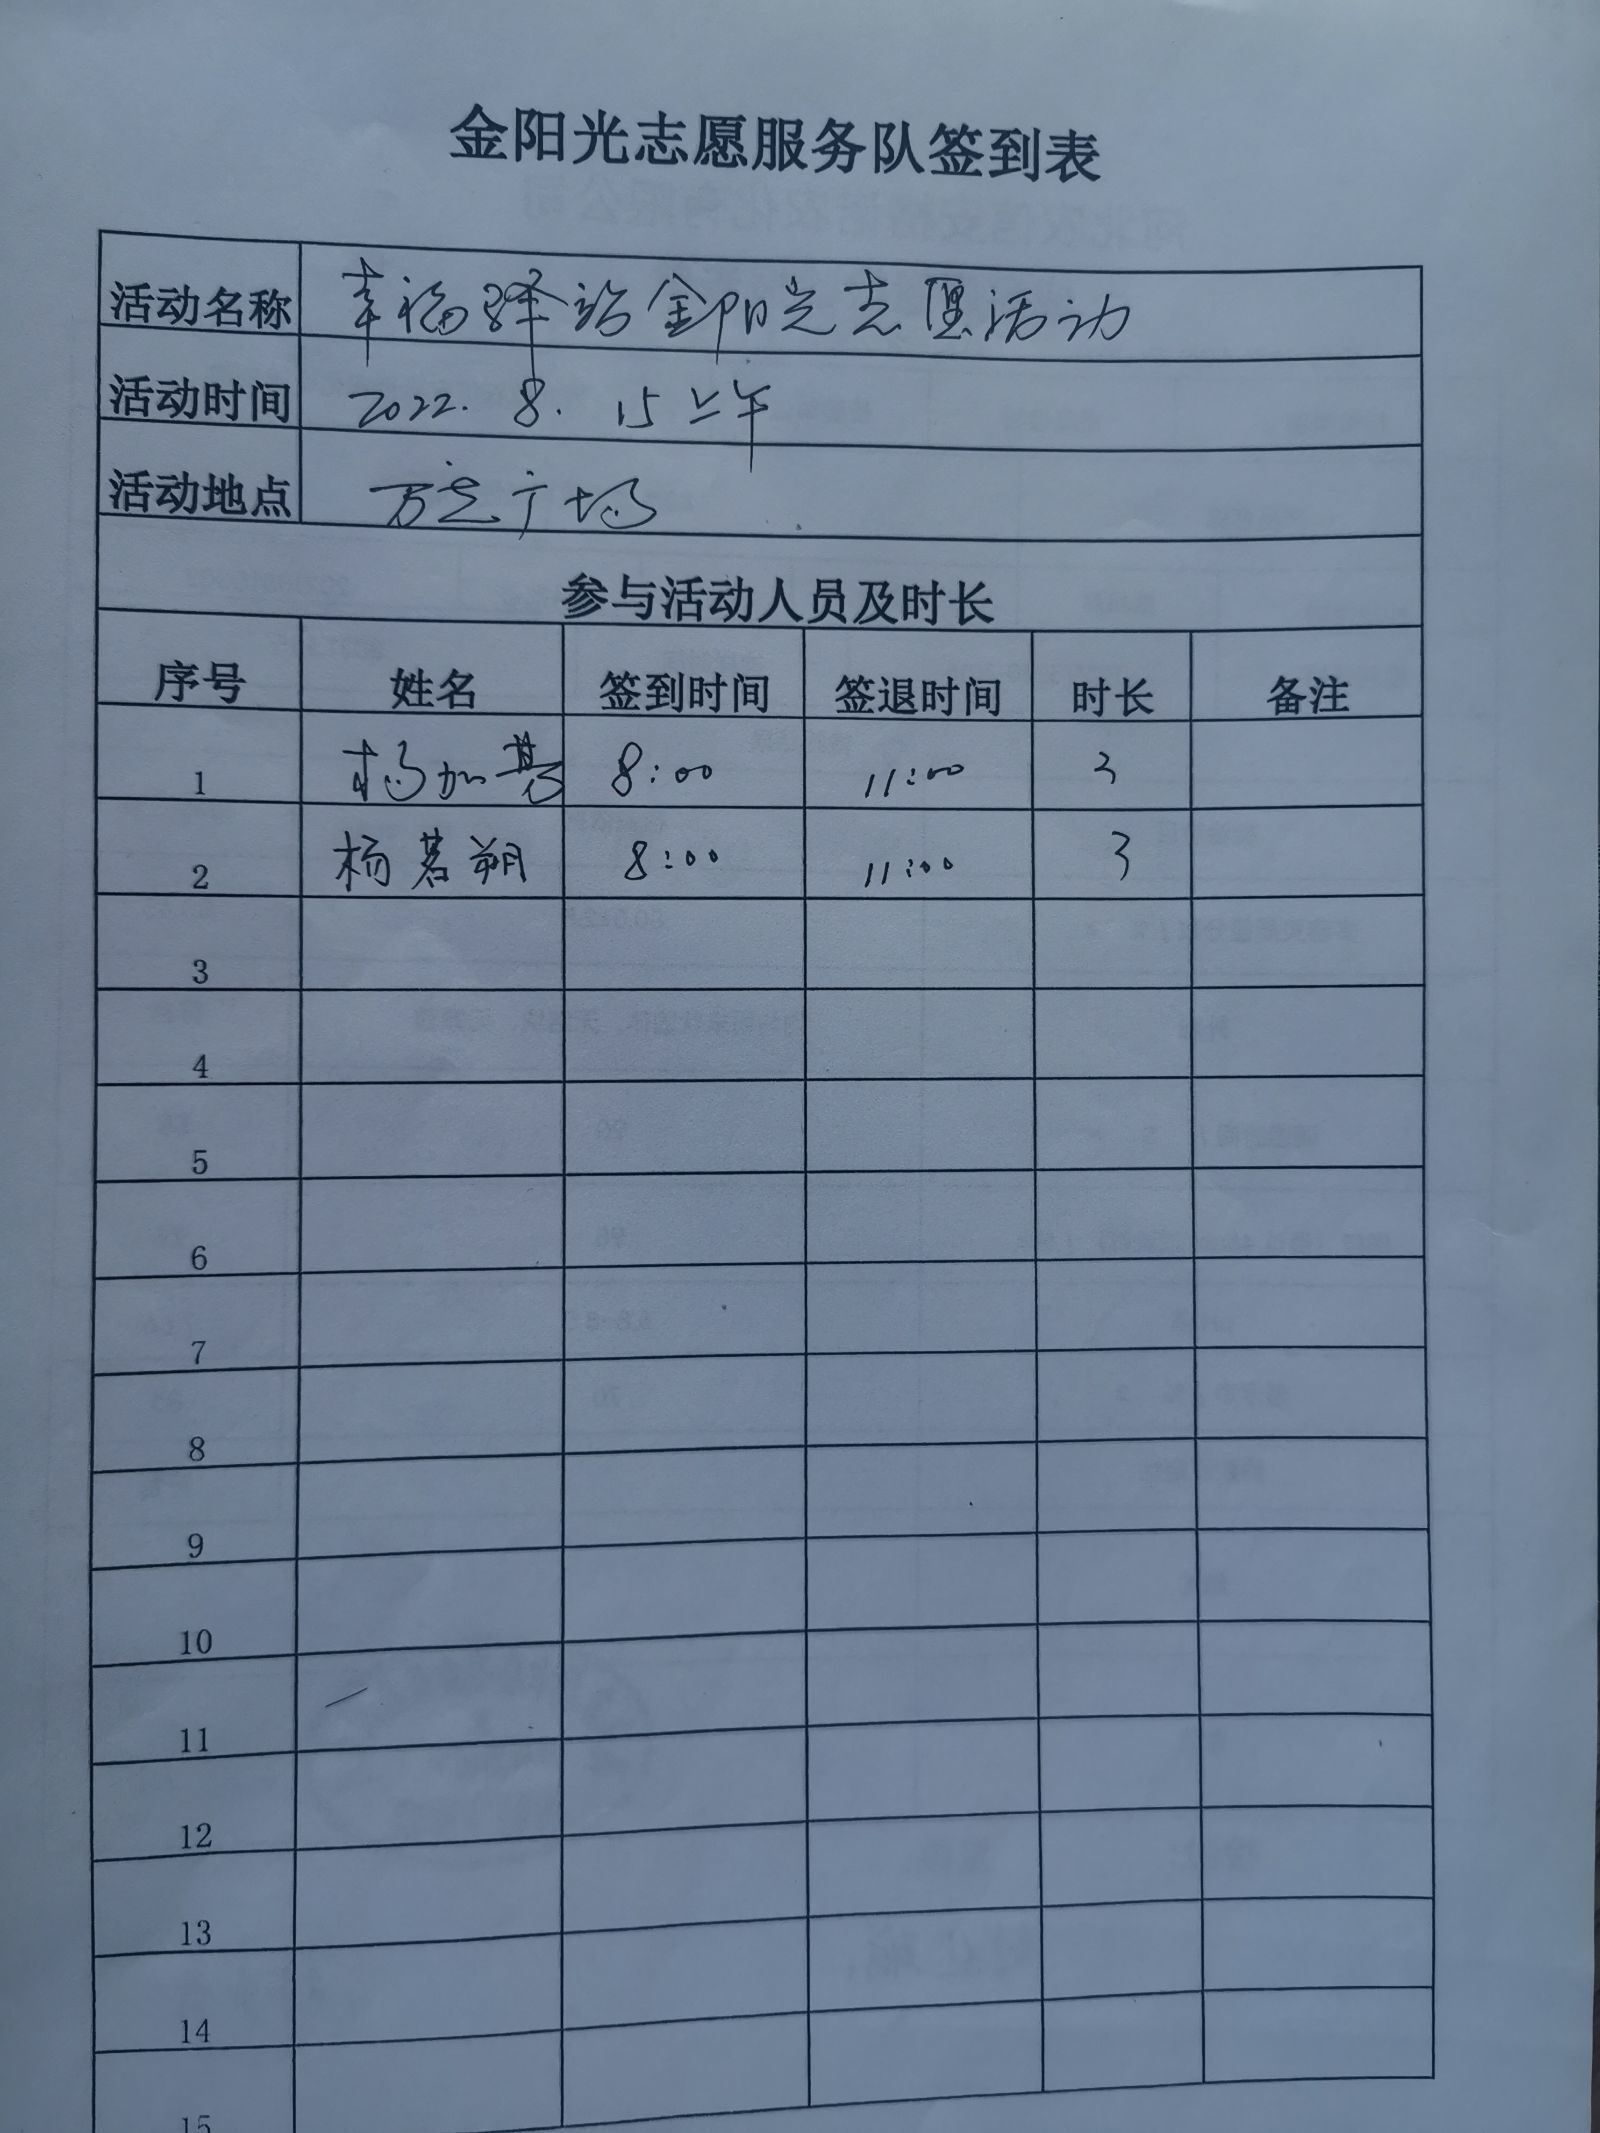 金阳光志愿服务队签到表
活动名称 幸福驿站金阳光志愿活动
活动时间 2022.8.15上午
活动地点 万达广场
参与活动人员及时长
序号 姓名 签到时间 签退时间 时长 备注
1 杨加 8:00 11:00 3
2 杨茗朔 8:00 11:00 3
3
4
5
6
7
8
9
10
11
12
13
14
15